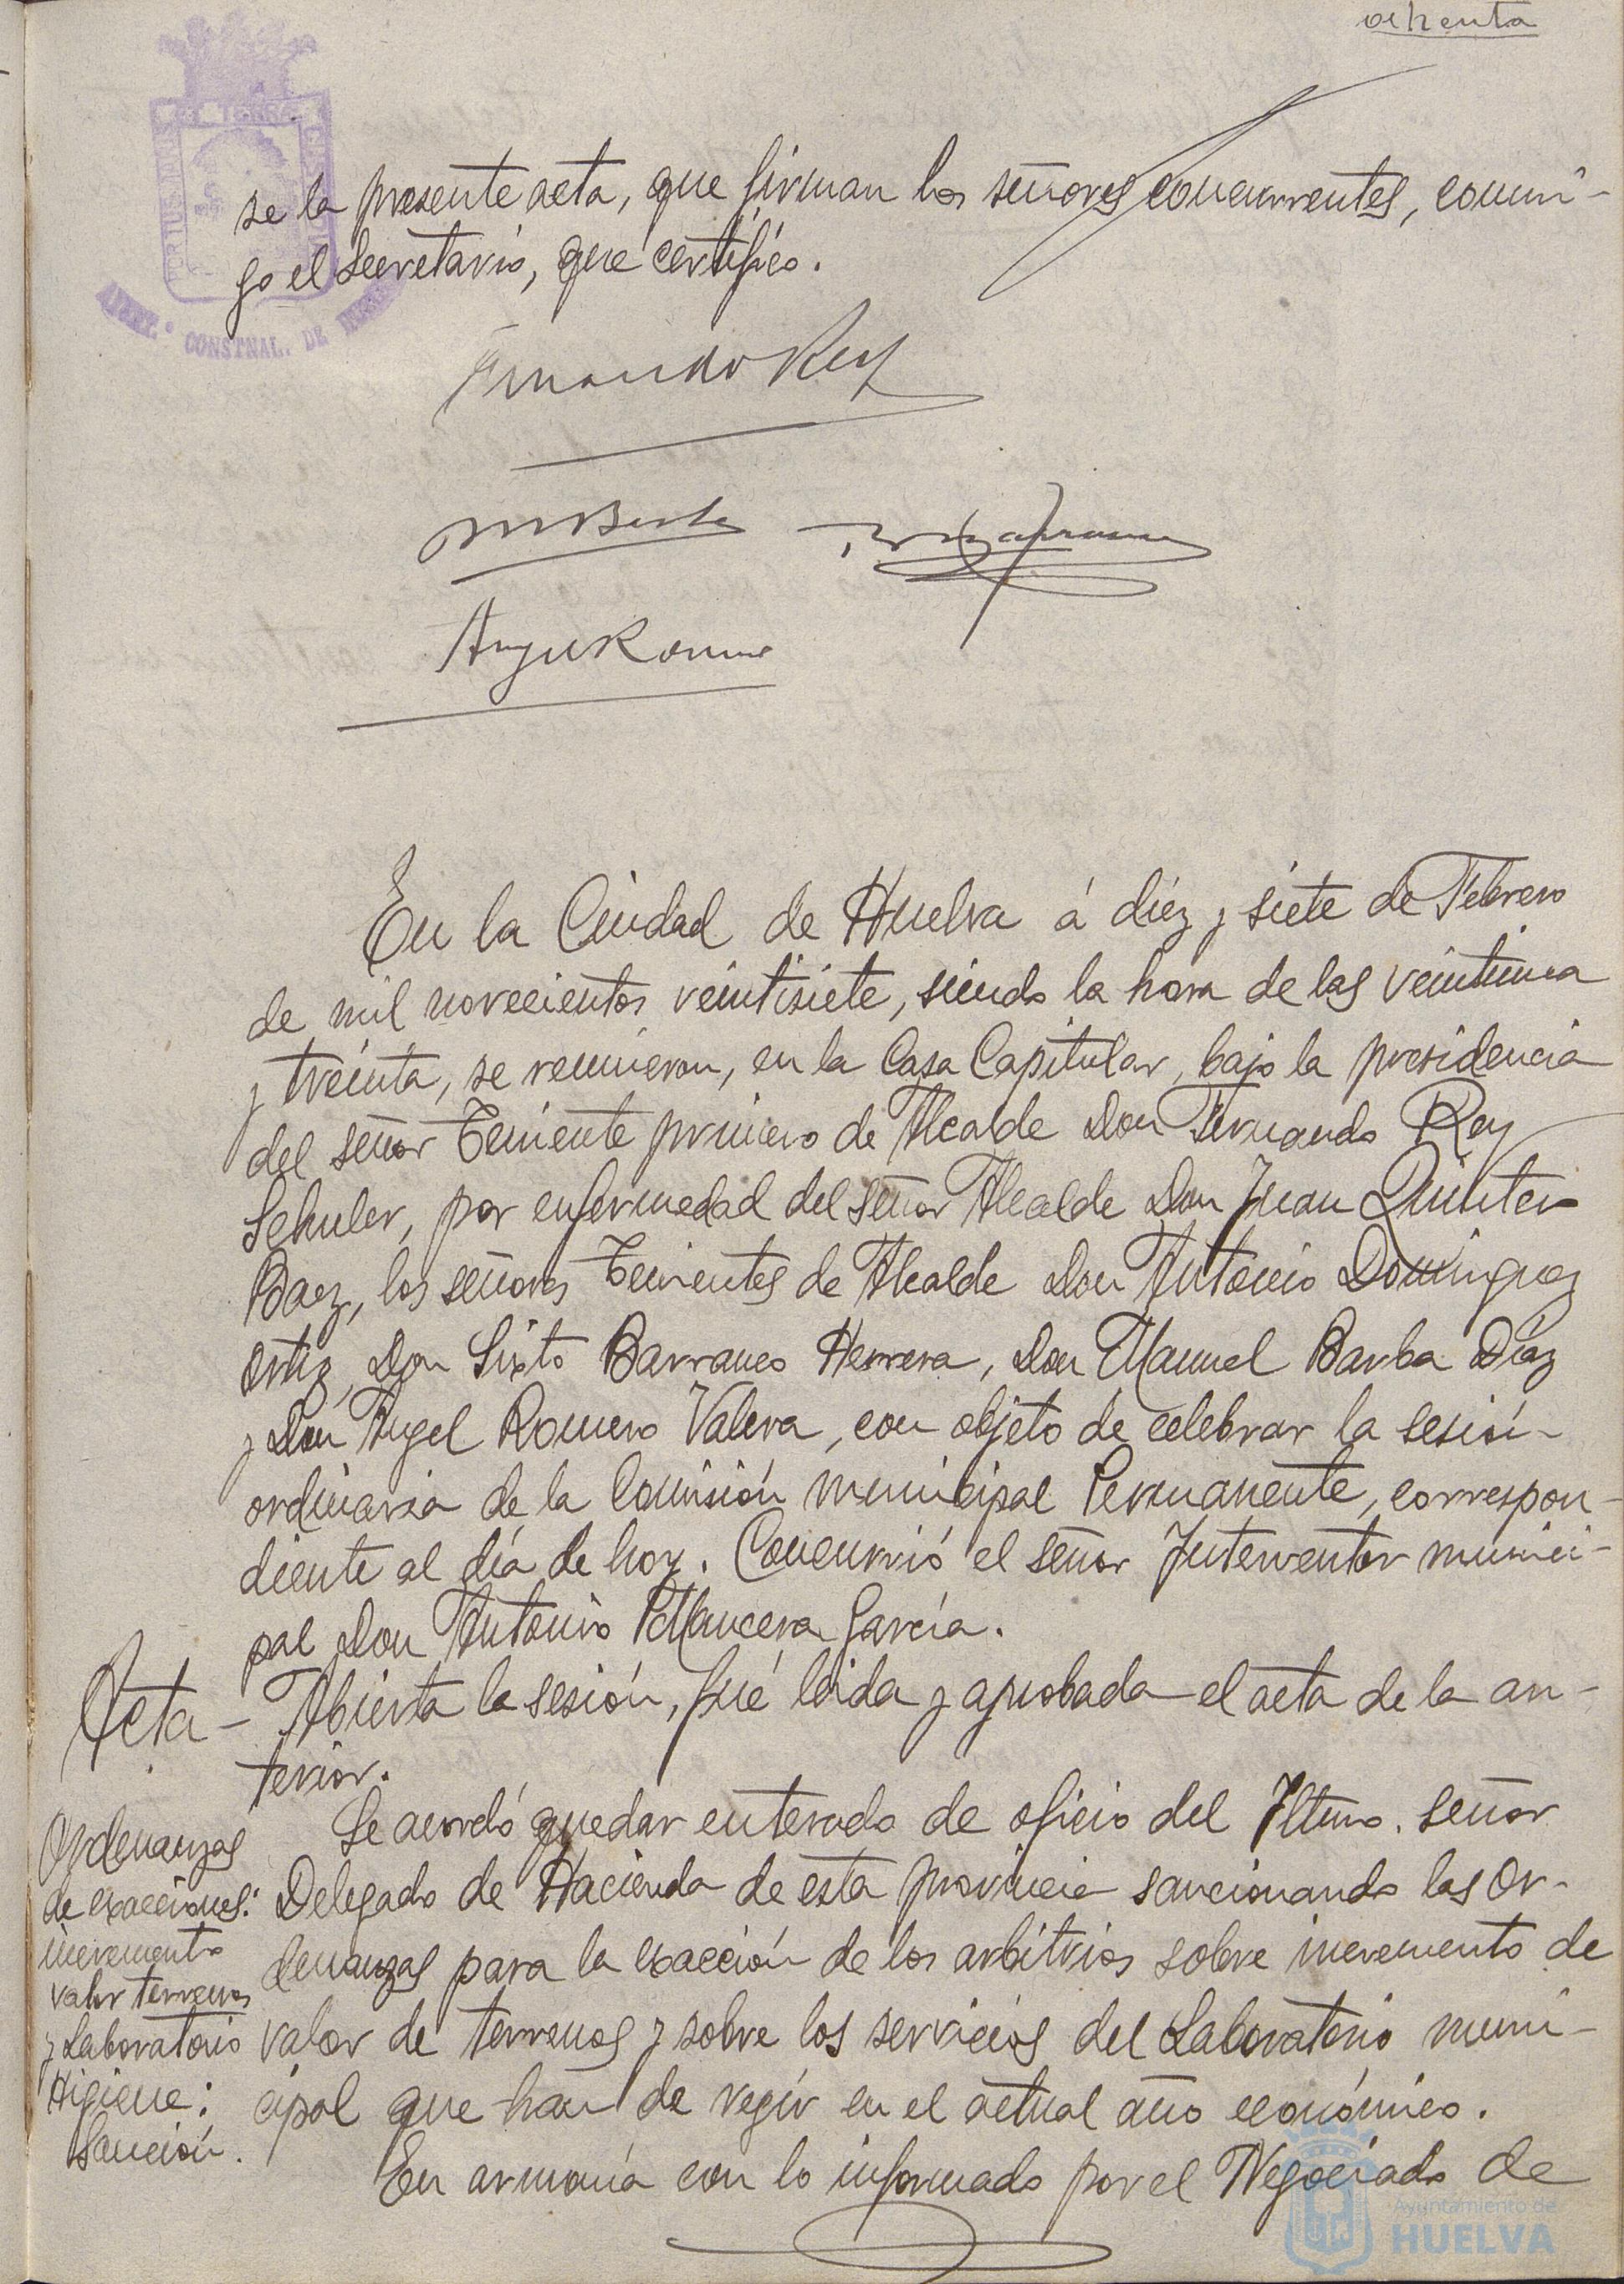 ochenta
se la presente acta, que firman los señores concurrentes, conmi-
go el Secretario, que certifico.
Fernando Rey
M Barba
Angel Romero
En la Ciudad de Huelva á diéz y siete de Febrero
de mil novecientos veintisiete, siendo la hora de las veintiuna
y treinta, se reunieron, en la Casa Capitular, bajo la presidencia
del señor Teniente primero de Alcalde Don Fernando Rey
Schuler, por enfermedad del señor Alcalde Don Juan Quintero
Baez, los señores Tenientes de Alcalde Don Antonio Dominguez
Ortiz, Don Sixto Barranco Herrera, Don Manuel Barba Díaz
y Don Angel Romero Valera, con objeto de celebrar la sesión
ordinaria de la Comisión municipal Permanente, correspon-
diente al día de hoy. Concurrió el señor Interventor munici-
pal Don Antonio Mancera García.
Acta - Abierta la sesión, fué leida y aprobada el acta de la an-
terior.
Ordenanzas
de exacciones:
incremento
valor terrenos
y Laboratorio
Higiene:
Sanción.
Se acordó quedar enterado de oficio del Iltmo. señor
Delegado de Hacienda de esta provincia sancionando las Or-
denanzas para la exacción de los arbitrios sobre incremento de
valor de terrenos y sobre los servicios del Laboratorio muni-
cipal que han de regir en el actual año económico.
En armonía con lo informado por el Negociado de
CONSTNAL. DE
Ayuntamiento de
HUELVA